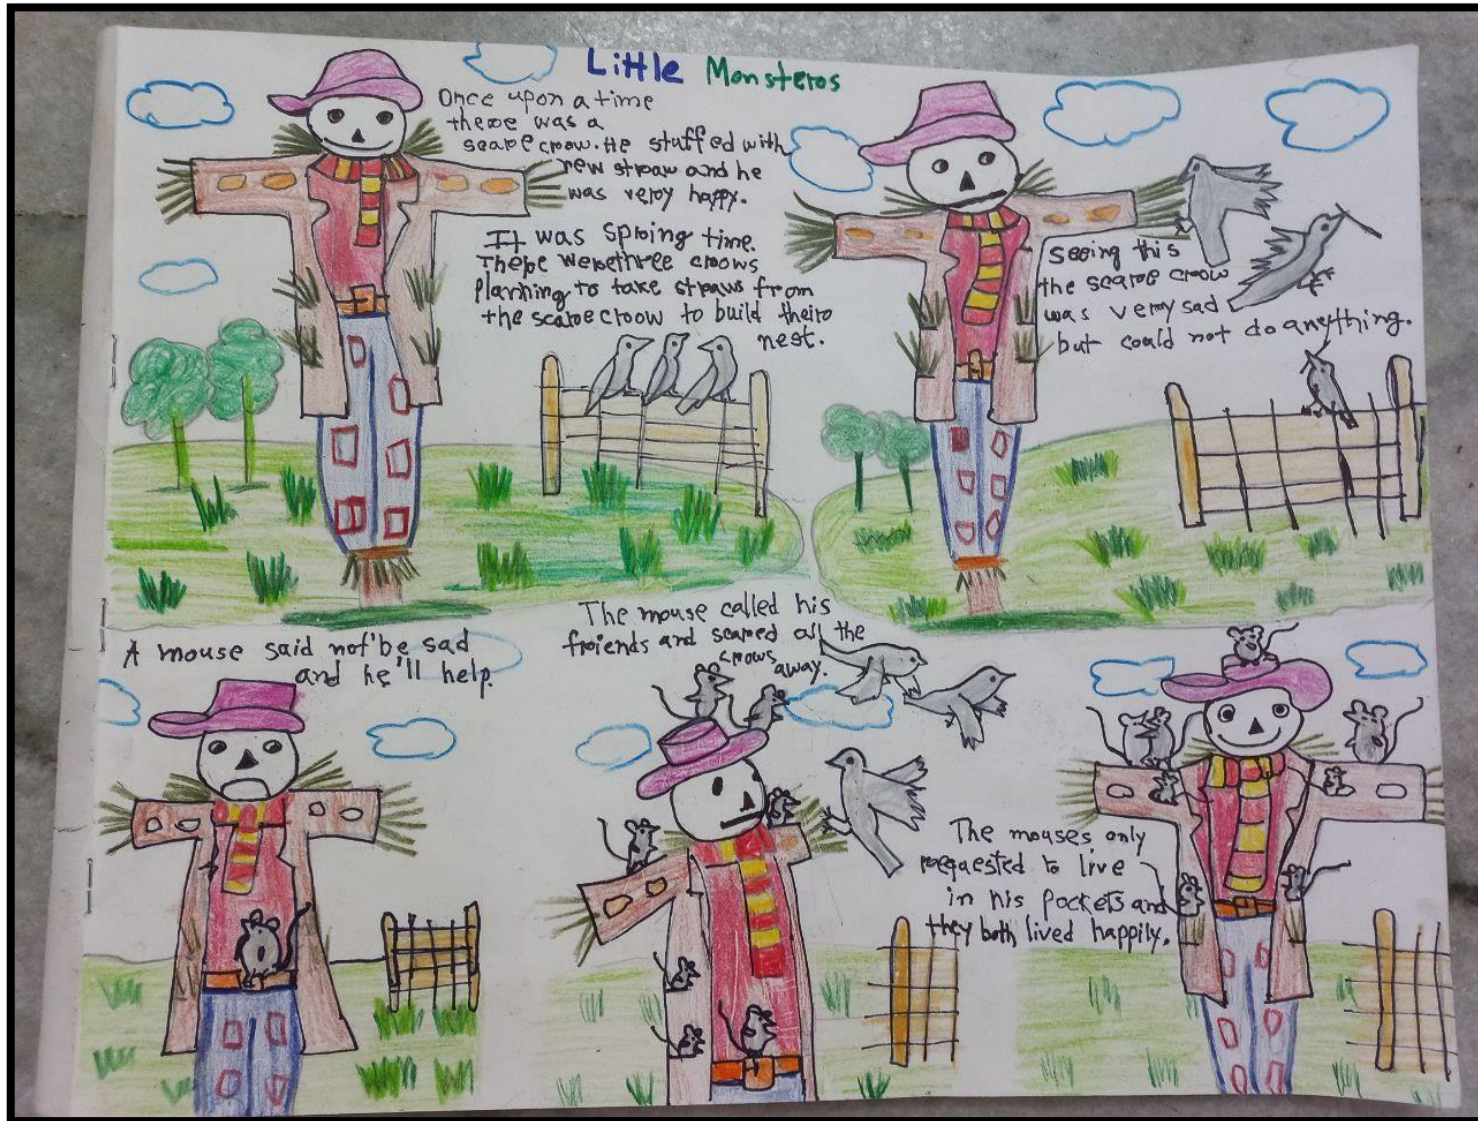 Little Monsters
Once upon a time
there was a
scare crow. He stuffed with
new straw and he
was very happy.
It was spring time.
There were three crows
planning to take straws from
the scare crow to build their
nest.
Seeing this
the scare crow
was very sad
but could not do anything.
A mouse said not' be sad
and he'll help.
The mouse called his
friends and scared all the
crows away.
The mouses only
requested to live
in his pockets and
they both lived happily.